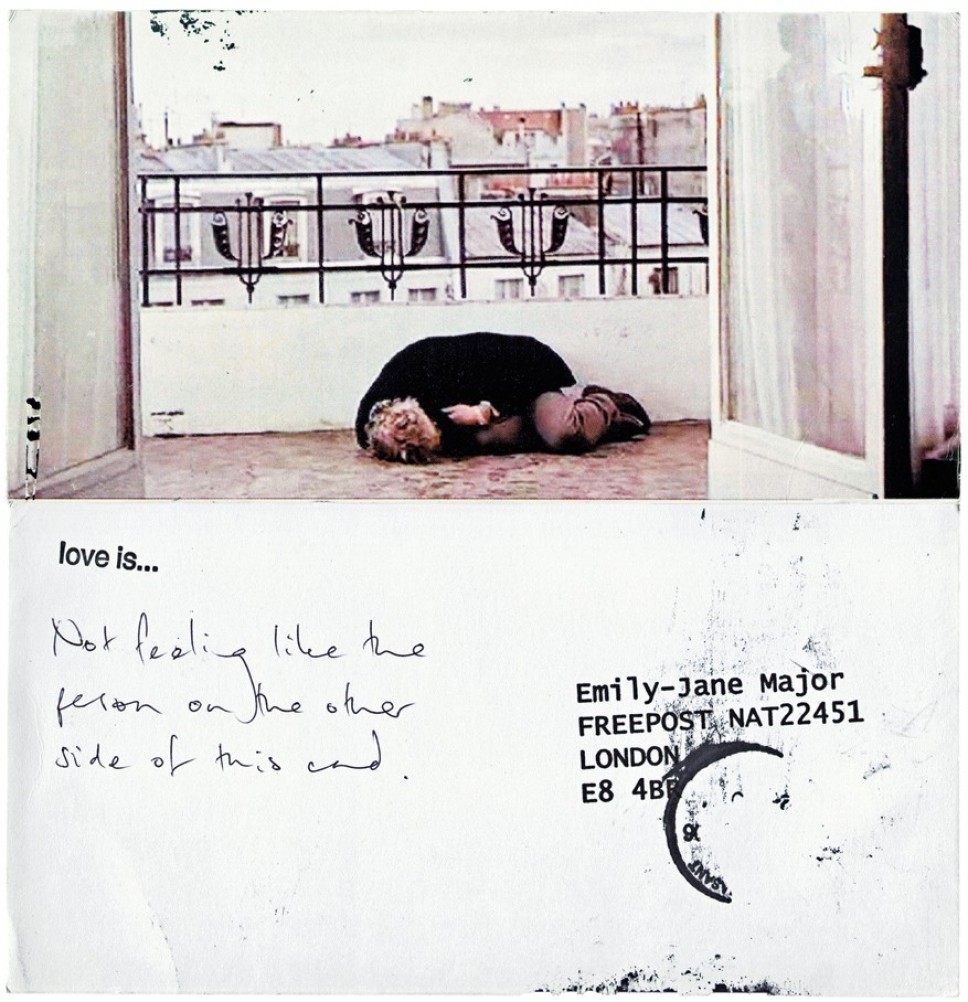 love is...
Not feeling like the
person on the other
side of this card.
Emily-Jane Major
FREEPOST NAT22451
LONDON
E8 4B